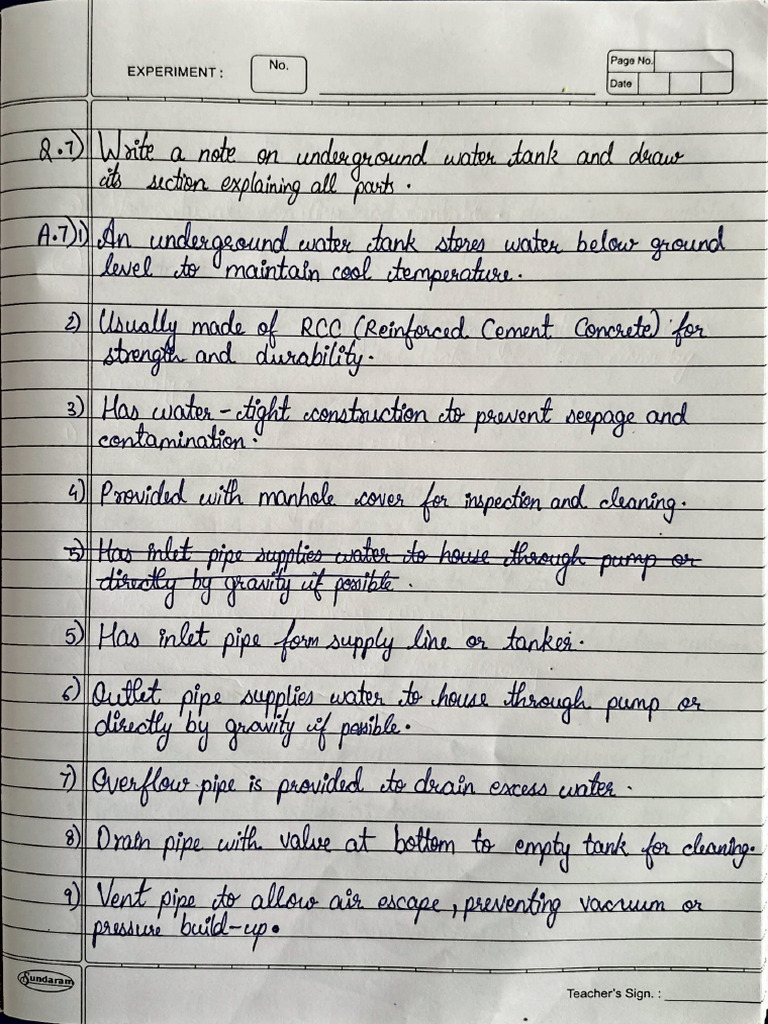 EXPERIMENT :
No.
Page No.
Date
Q.7) Write a note on underground water tank and draw
its section explaining all parts.
A.7) 1) An underground water tank stores water below ground
level to maintain cool temperature.
2) Usually made of RCC (Reinforced Cement Concrete) for
strength and durability.
3) Has water-tight construction to prevent seepage and
contamination.
4) Provided with manhole cover for inspection and cleaning.
5) Has inlet pipe supplies water to house through pump or
directly by gravity if possible.
5) Has inlet pipe form supply line or tanker.
6) Outlet pipe supplies water to house through pump or
directly by gravity if possible.
7) Overflow pipe is provided to drain excess water.
8) Drain pipe with valve at bottom to empty tank for cleaning.
9) Vent pipe to allow air escape, preventing vacuum or
pressure build-up.
Sundaram
Teacher's Sign. :